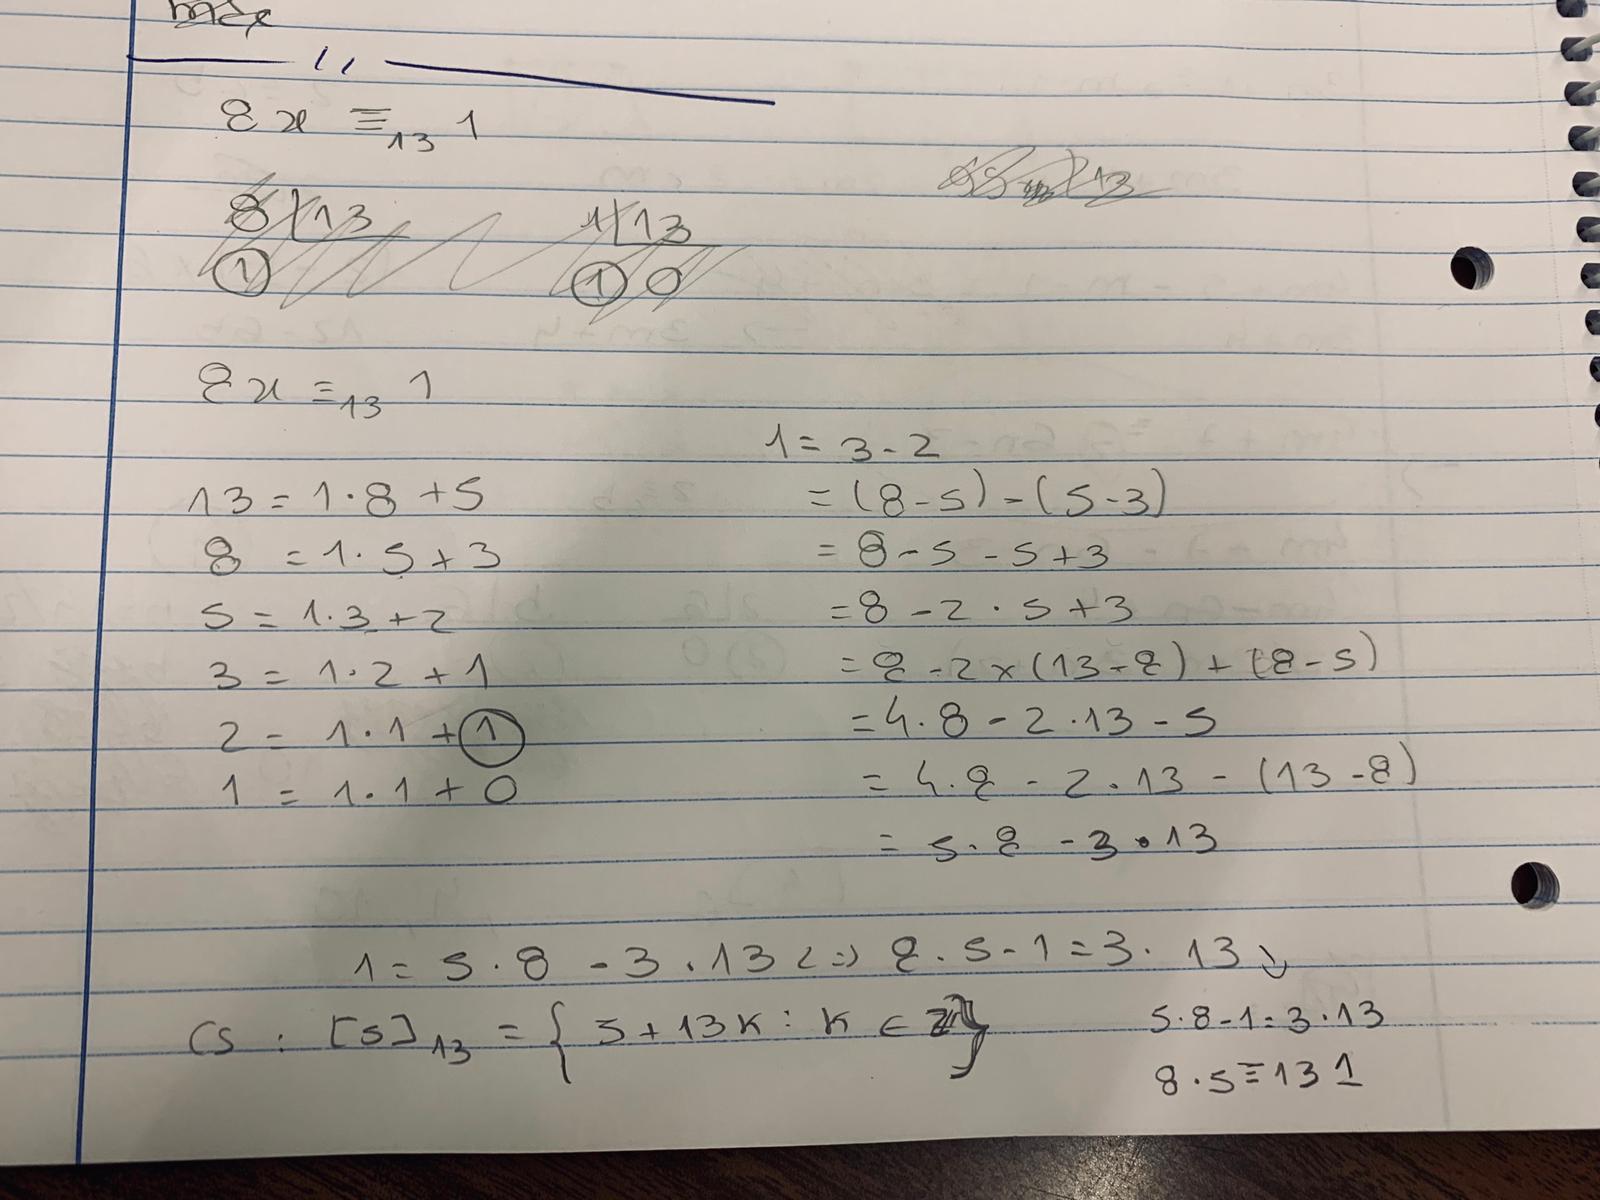 8x ≡₁₃ 1
8 | 13
1
1 | 13
1 0
8x ≡₁₃ 1
13 = 1·8 + 5
8 = 1·5 + 3
5 = 1·3 + 2
3 = 1·2 + 1
2 = 1·1 + 1
1 = 1·1 + 0
1 = 3 - 2
= (8 - 5) - (5 - 3)
= 8 - 5 - 5 + 3
= 8 - 2 · 5 + 3
= 8 - 2 × (13 - 8) + (8 - 5)
= 4·8 - 2·13 - 5
= 4·8 - 2·13 - (13 - 8)
= 5·8 - 3·13
1 = 5·8 - 3·13 <=> 8·5 - 1 = 3·13 ↓
5·8 - 1 = 3·13
8·5 ≡ 13 1
CS : [5]₁₃ = { 5 + 13k : k ∈ ℤ }